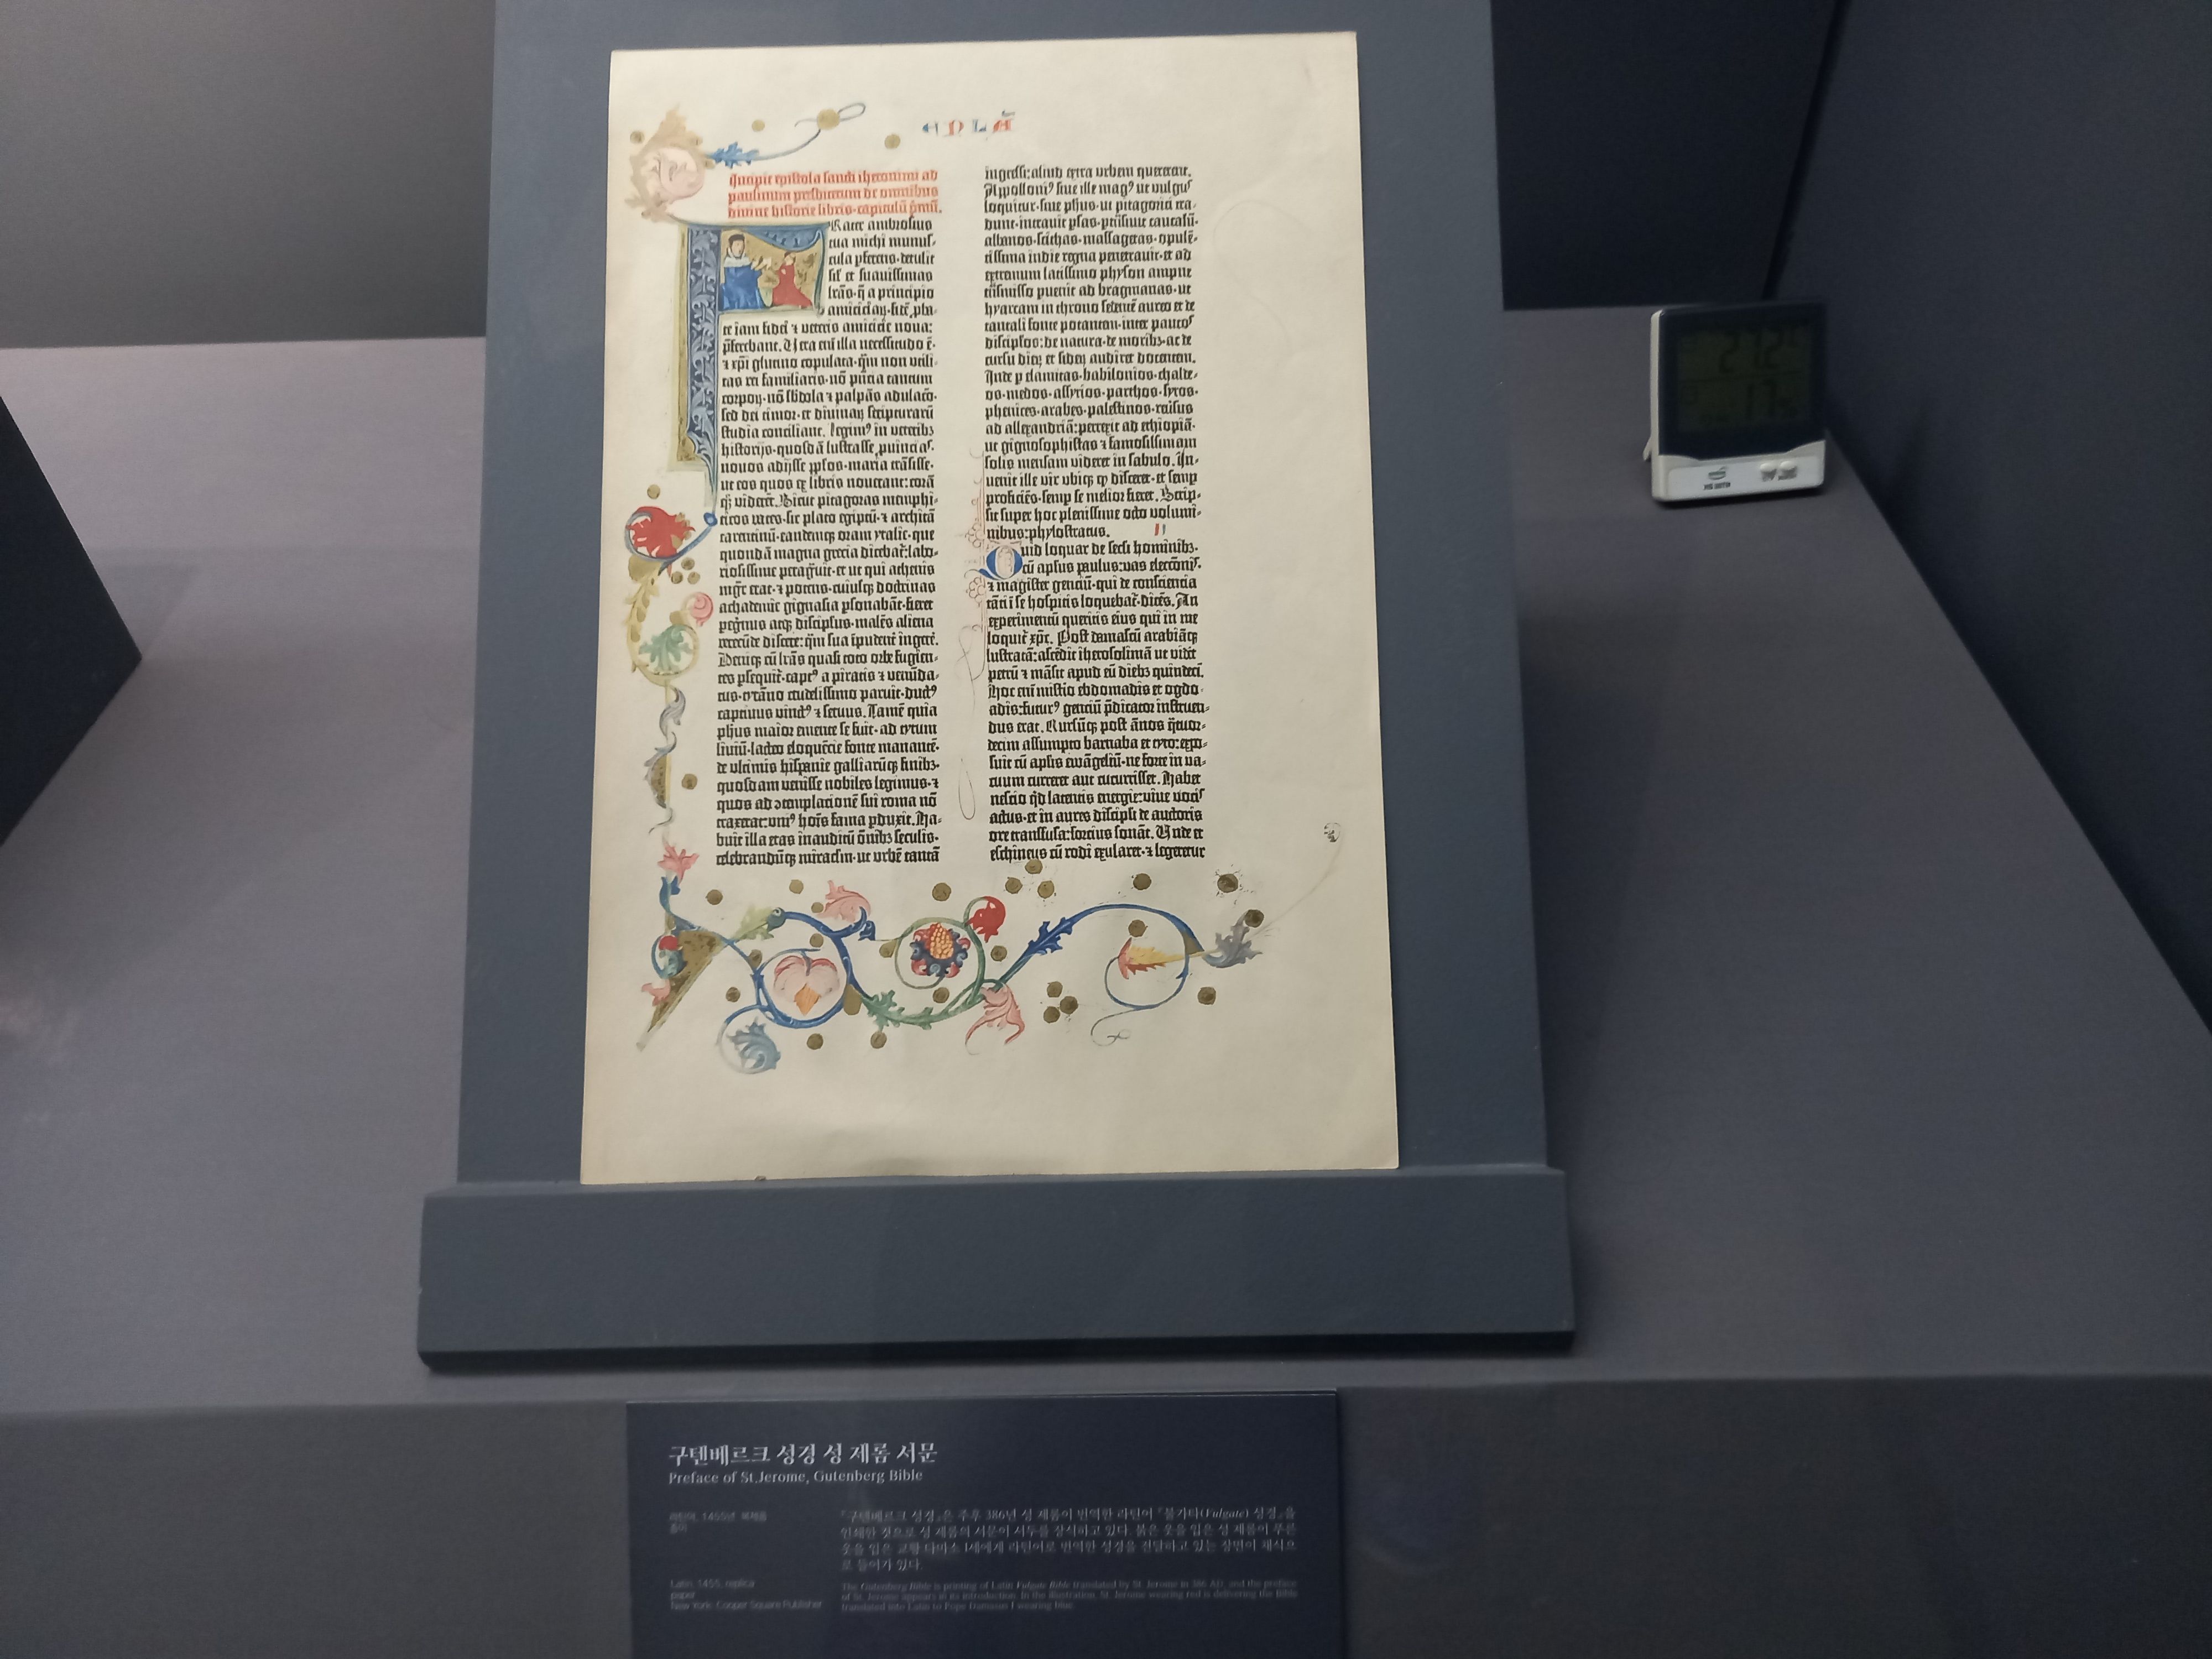 EPLA
Incipit epistola sancti iheronimi ad
paulinum presbiterum de omnibus
divine historie libris·capitulū p̄mū.
Frater ambrosius
tua michi munus-
cula pferens·detulit
sil' et suavissimas
lrās·q̄ a principio
amiciciaꝝ·fidē pba-
te iam fidei ⁊ veteris amicicie nova:
p̄ferebant. Vera eni illa necessitudo ē·
⁊ xpi glutino copulata·q̄m non utili-
tas rei familiaris·nō p̄ncia tantum
corpoꝝ·nō sbdola ⁊ palpās adulacō·
sed dei timor·et divinaꝝ scripturarū
studia conciliant. Legim⁹ in veteribꝫ
historijs·quosdā lustrasse puincias·
novos adijsse pplos·maria trāsisse·
ut eos quos ex libris noverant: corā
qꝫ viderēt. Sicut pitagoras memphi-
ticos vates·sic plato egiptū·⁊ architā
tarentinū·eandemqꝫ oram ytalie·que
quondā magna grecia dicebat̄: labo-
riosissime peragvit·et ut qui athenis
mgr̄ erat·⁊ potens·cuiusqꝫ doctrinas
achademie gignasia psonabāt·fieret
peginus atqꝫ discipulus·malēs aliena
verecūde discere: q̄m sua īpudent̄ ingeī.
Deniqꝫ cū lrās quasi toto orbe fugien-
tes psequit̄·capt⁹ a piratis ⁊ venūda-
tus·tirāno crudelissimo paruit·duct⁹
captivus vinct⁹ ⁊ servus. Tamē quia
phus maior emente se fuit·ad tytum
liviū·lacteo eloquēcie fonte manantē·
de ultimis hispanie galliarūqꝫ finibꝫ·
quosdam venisse nobiles legimus·⁊
quos ad ɔtemplacionē sui roma nō
traxerat: uni⁹ hoīs fama pduxit. Ha-
buit illa etas inauditū ōnibꝫ seculis·
celebrandūqꝫ miraclm·ut urbē tantā
ingressi: aliud extra urbem quererent.
Apolloni⁹ sive ille mag⁹ ut vulgus
loquitur·sive phus·ut pitagorici tra-
dunt·intravit psas·ptrāsivit caucasū·
albanos·scithas·massagetas·opulē-
tissima indie regna penetravit·et ad
extremum latissimo physon ampne
trāsmisso puenit ad bragmanas·ut
hyarcam in throno sedentē aureo et de
tantali fonte potantem·inter paucos
discipulos: de natura·de moribꝫ·ac de
cursu dieꝝ et sideꝝ audiret docentem.
Inde p elamitas·babilonios·chalde-
os·medos·assyrios·parthos·syros·
phenices·arabes·palestinos·reversus
ad allexandriā: perrexit ad ethiopiā·
ut gignosophistas ⁊ famosissimam
solis mensam videret in sabulo. In-
venit ille vir ubiqꝫ qd disceret·et semp
proficiēs·semp se melior fieret. Scrip-
sit super hoc plenissime octo volumi-
nibus: phylostratus. II
Quid loquar de secli hominibꝫ·
cū aplus paulus: vas electionis·
⁊ magister genciū·qui de consciencia
tāti ī se hospitis loquebat̄·dicēs. An
experimentū queritis eius qui in me
loquit̄ xpc. Post damascū arabiāqꝫ
lustratā: ascēdit iherosolimā ut vidēt
petrū ⁊ māsit apud eū diebꝫ quindeci.
Hoc eni mistio ebdomadis et ogdo-
adis: futur⁹ genciū pdicator instruen-
dus erat. Rursūqꝫ post ānos q̄tuor-
decim assumpto barnaba et tyto: expo-
suit cū aplis evāgeliū·ne forte in va-
cuum curreret aut cucurrisset. Habet
nescio qd latentis energie: vive vocis
actus·et in aures discipli de auctoris
ore transfusa: forcius sonāt. Unde et
eschineus cū rodi exularet·⁊ legeretur
구텐베르크 성경 성 제롬 서문
Preface of St.Jerome, Gutenberg Bible
라틴어, 1455년, 복제품
종이
『구텐베르크 성경』은 주후 386년 성 제롬이 번역한 라틴어 『불가타(Vulgate) 성경』을
인쇄한 것으로 성 제롬의 서문이 서두를 장식하고 있다. 붉은 옷을 입은 성 제롬이 푸른
옷을 입은 교황 다마스 1세에게 라틴어로 번역한 성경을 전달하고 있는 장면이 채식으
로 들어가 있다.
Latin, 1455, replica
paper
New York: Cooper Square Publisher
The Gutenberg Bible is printing of Latin Vulgate Bible translated by St. Jerome in 386 AD, and the preface
of St. Jerome appears in its introduction. In the illustration, St. Jerome wearing red is delivering the Bible
translated into Latin to Pope Damasus I wearing blue.